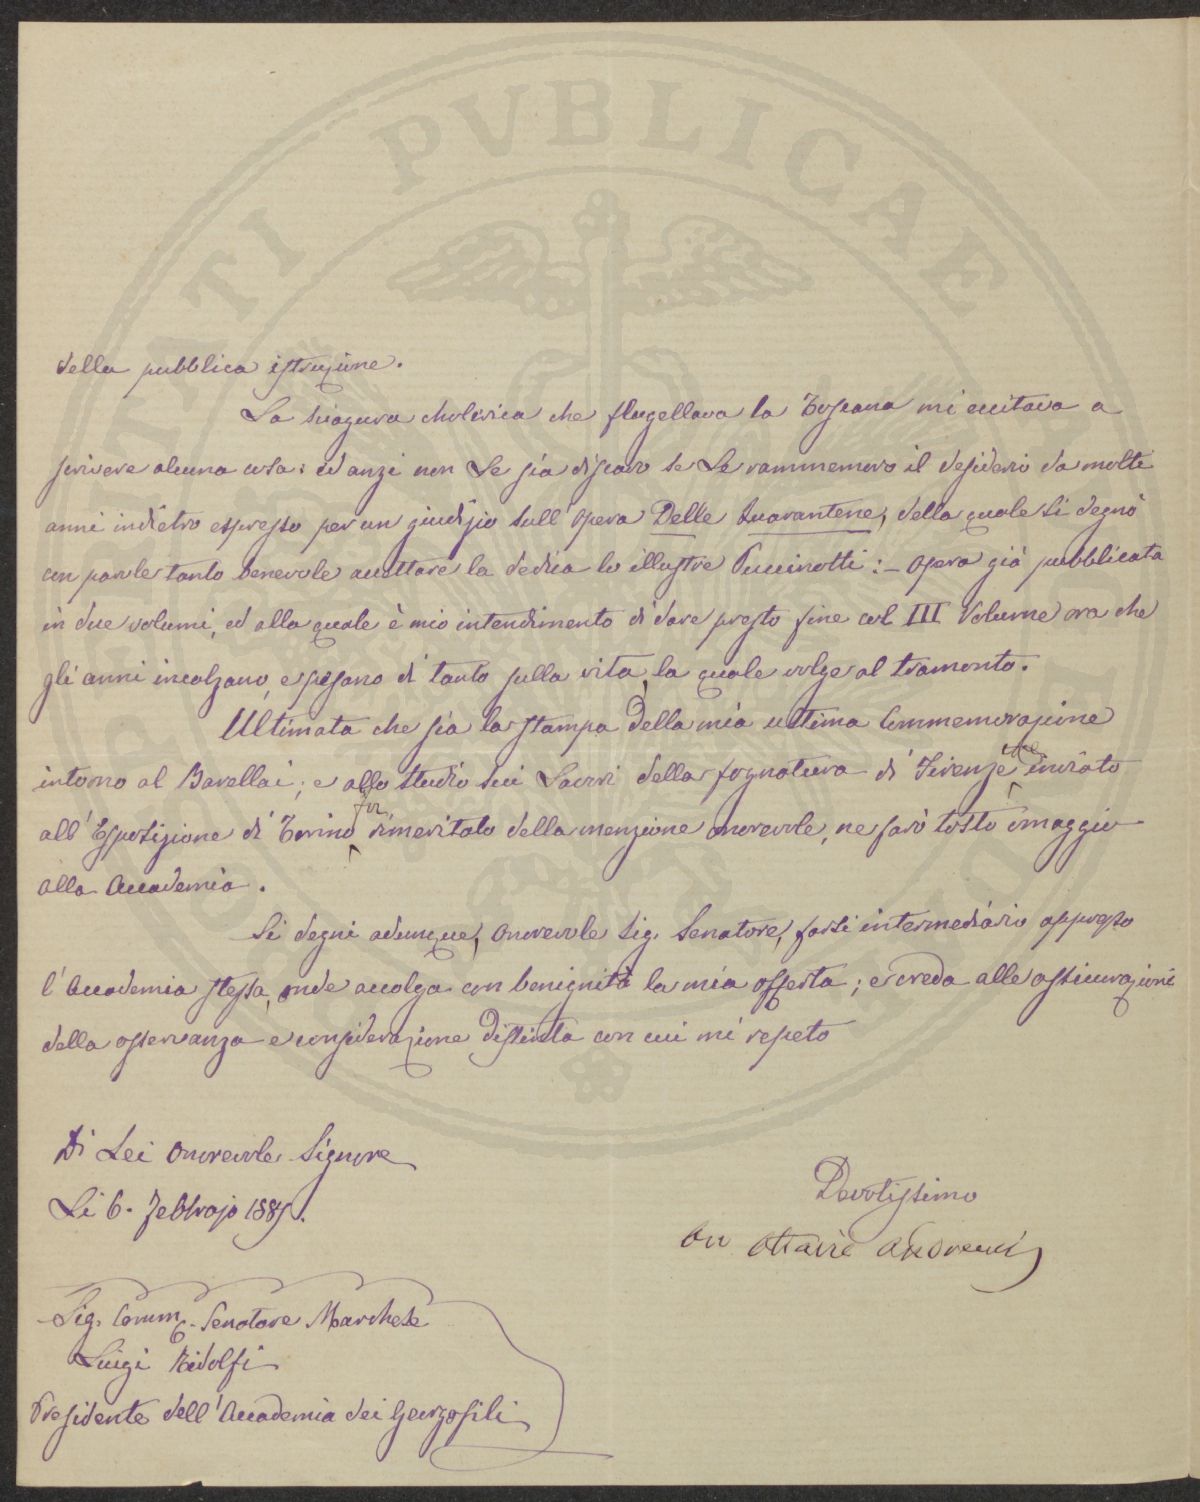 della pubblica istruzione.
La sciagura cholerica che flagellava la Toscana mi eccitava a
scrivere alcuna cosa: ed anzi non Le sia discaro se Le rammemoro il desiderio da molti
anni indietro espresso per un giudizio sull' opera Delle Quarantene, della quale si degnò
con parole tanto benevole accettare la dedica lo illustre Puccinotti: – opera già pubblicata
in due volumi, ed alla quale è mio intendimento di dare presto fine col III Volume ora che
gli anni incalzano, e pesano di tanto sulla vita, la quale volge al tramonto.
Ultimata che sia la stampa della mia ultima Commemorazione
intorno al Barellai; e allo studio sui Lavori della fognatura di Firenze, che inviato
all' Esposizione di Torino fu rimeritato della menzione onorevole, ne farò tosto omaggio
alla Accademia.
Si degni adunque, onorevole Sig. Senatore, farsi intermediario appresso
l' Accademia stessa, onde accolga con benignità la mia offerta; e creda alle assicurazioni
della osservanza e considerazione distinta con cui mi repeto
Di Lei onorevole Signore
Li 6. Febbrajo 1885.
Devotissimo
Ottavio Andreucci
Sig. Comm. Senatore Marchese
Luigi Ridolfi
Presidente dell' Accademia dei Georgofili
PVBLICAE